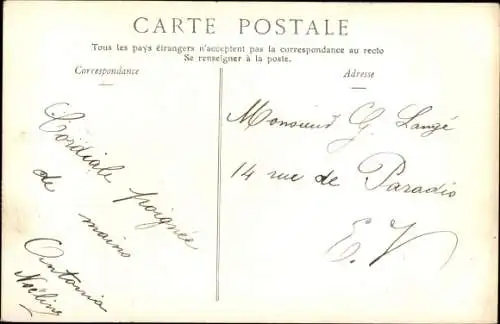 CARTE POSTALE
Tous les pays étrangers n'acceptent pas la correspondance au recto
Se renseigner à la poste.
Correspondance
Adresse
Cordiale poignée
de mains
Antonia
Monsieur G. Langé
14 rue de Paradis
E.V.